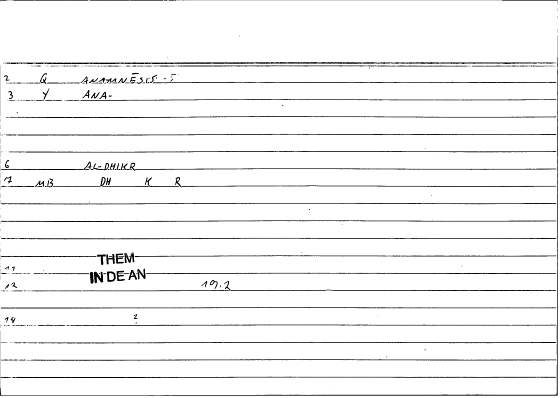 2 Q ANAMNĒSIS-I
3 Y ANA-
6 AL-DHIKR
7 MB DH K R
THEM
11 IN DE AN
12 19.2
14 2